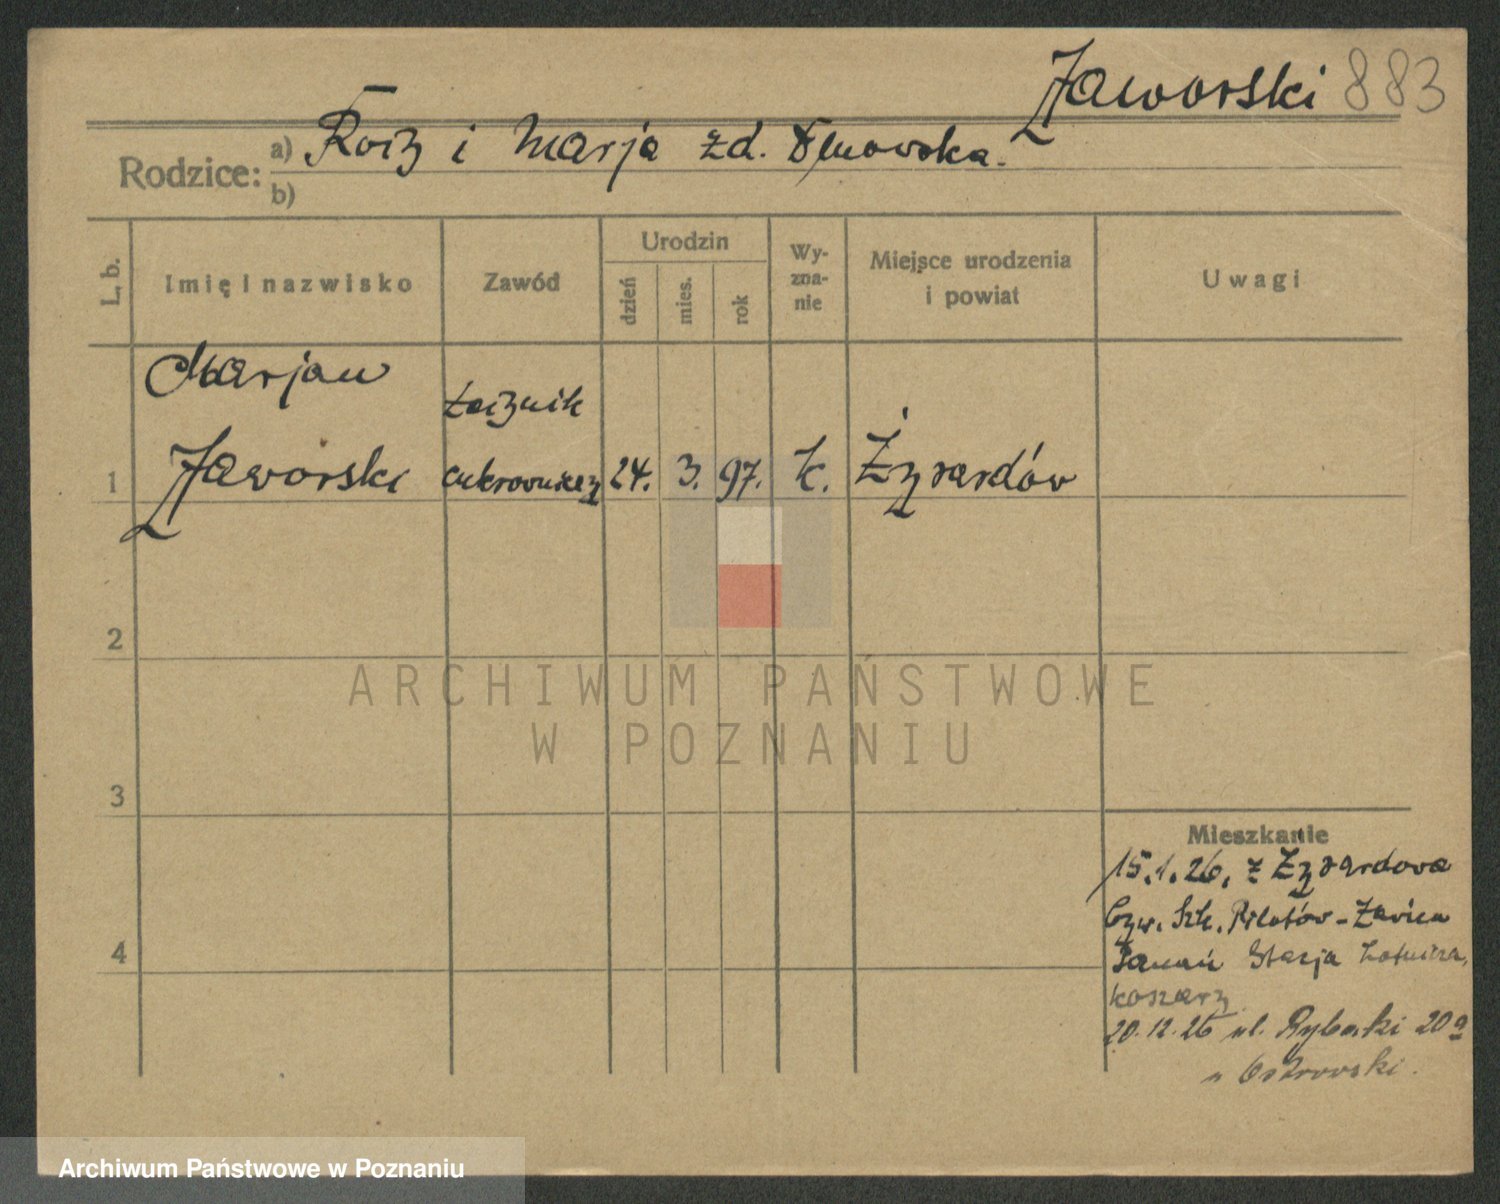 Jaworski 883
Rodzice: a) i Marja zd.
b)
L. b.
Imię i nazwisko
Zawód
Urodzin
dzień
mies.
rok
Wy-
zna-
nie
Miejsce urodzenia
i powiat
Uwagi
Marjan
1 Jaworski 24. 3. 97. k. Żyrardów
2
3
4
Mieszkanie
15.1.26. z Żyrardowa
Pilotów - Ławica
Stacja Lotnicza,
koszary
20.12.26 ul. Rybaki 20a
u Ostrowski.
ARCHIWUM PAŃSTWOWE
W POZNANIU
Archiwum Państwowe w Poznaniu